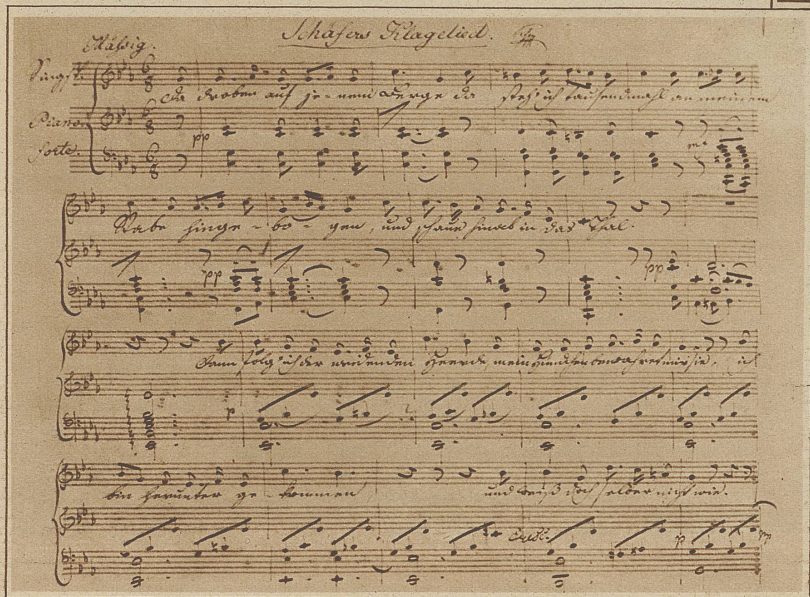 Schäfers Klagelied.
Mäßig.
Singst.
Da droben auf je-nem Berge da steh' ich tausendmahl an meinem
Piano
forte.
pp
Stabe hinge-bo-gen, und schaue hinab in das Thal.
pp pp
Dann folg' ich der weidenden Heerde, mein Hündchen bewahret mir sie, ich
p
bin herunter ge-kommen und weiß doch selber nicht wie.
cresc. p pp